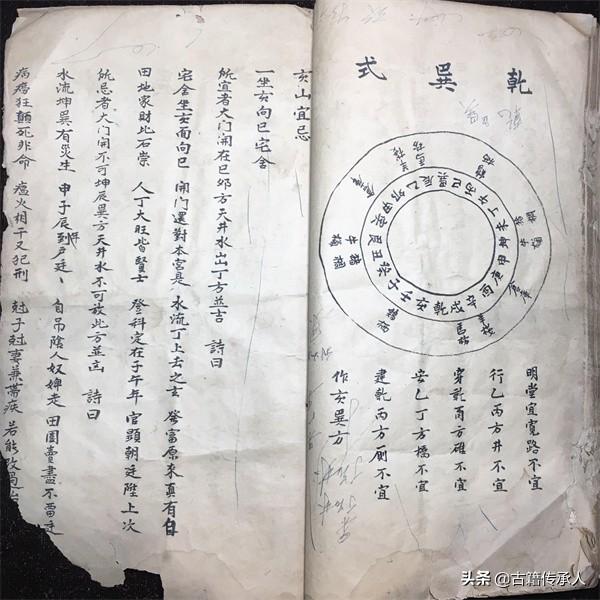 乾巽式
子壬亥乾戌辛酉庚申坤未丁午丙巳巽辰乙卯甲寅艮丑癸
明堂宜寬路不宜
行乙丙方井不宜
穿乾酉方碓不宜
安乙丁方橋不宜
建乾丙方厠不宜
作亥巽方
亥山宜忌
一坐亥向巳宅舍
所宜者大门開在巳卯方天井水出丁方並吉 詩曰
宅舍坐亥面向巳 開门還對本宫是 水流丁上去之玄 發富原來真有自
田地家財比石崇 人丁大旺皆賢士 登科定在子午年 官顕朝廷陞上次
所忌者大门開不可坤辰巽方天井水不可放此方並凶 詩曰
水流坤巽有災生 申子辰年到户廷 自吊陰人奴婢走 田園賣盡不畱
病癆狂顛死非命 瘟火相干又犯刑 尅子尅妻兼帶疾 若能改局
头条 @古籍传承人